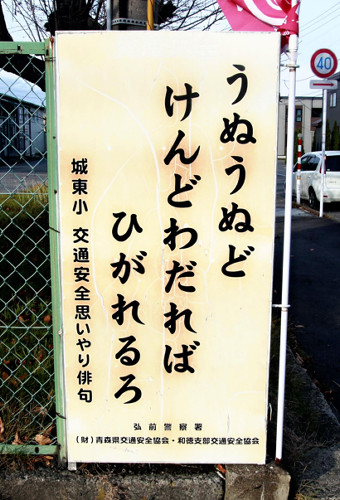 うぬうぬど
けんどわだれば
ひがれるろ
城東小 交通安全思いやり俳句
弘前警察署
(財)青森県交通安全協会・和徳支部交通安全協会
40